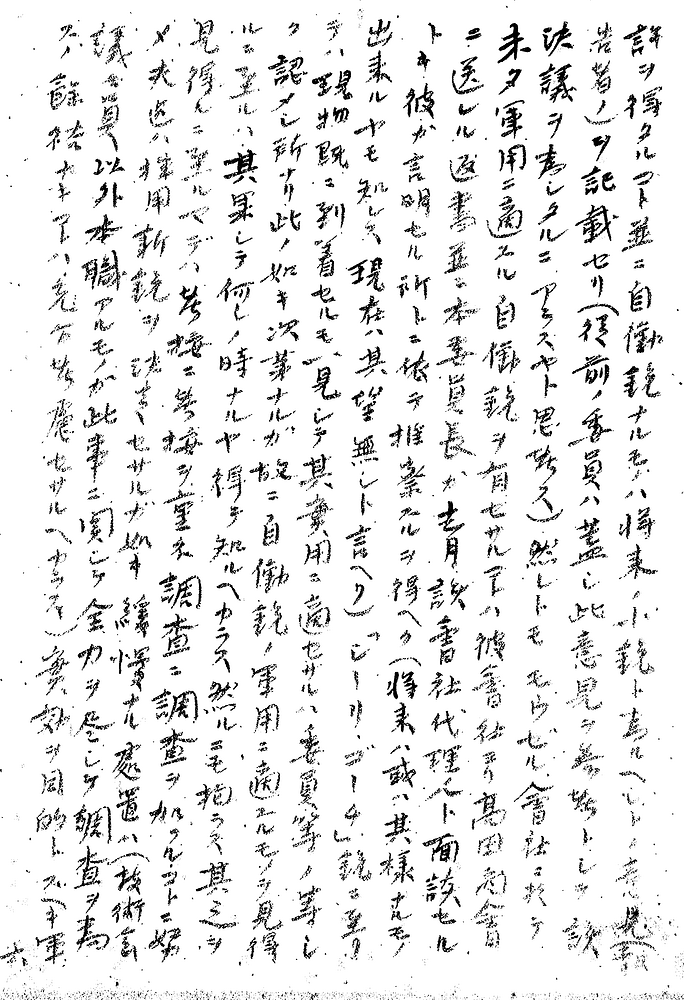 許ヲ得タルコト並ニ自働銃ナルモノハ将来ノ小銃ト為ルヘシトノ意見(報
告者ノ)ヲ記載セリ(従前ノ委員ハ蓋シ此意見ヲ参考トシテ該
決議ヲ為シタルニアラスヤト思考ス)然レトモモウゼル会社ニ於テ
未タ軍用ニ適スル自働銃ヲ有セサルコトハ彼会社ヨリ高田商会
ニ送レル返書並ニ本委員長カ去月該会社代理人ト面談セル
トキ彼カ言明セル所トニ依テ推察スルヲ得ヘク(将来ハ或ハ其様ナルモノ
出来ルヤモ知レス現在ハ其望無シト言ヘリ)「シーリ、ゴーチ」銃ニ至リ
テハ現物既ニ到着セルモ一見シテ其実用ニ適セサルハ委員等ノ等シ
ク認メシ所ナリ此ノ如キ次第ナルカ故ニ自働銃ノ軍用ニ適スルモノヲ見得
ルニ至ルハ其果シテ何レノ時ナルヤ得テ知ルヘカラス然ルニモ拘ラス其之ヲ
見得ルニ至ルマデハ考按ニ考按ヲ重ネ調査ニ調査ヲ加フルコトニ努
メ夫迄ハ採用新銃ヲ決定セサルカ如キ緩慢ナル処置ハ(技術会
議々員ハ以外本職アルモノカ此事ニ関シテ全力ヲ尽シテ調査ヲ為
スノ余裕ナキコトハ先ツ考慮セサルヘカラス)実効ヲ目的トスヘキ軍
六